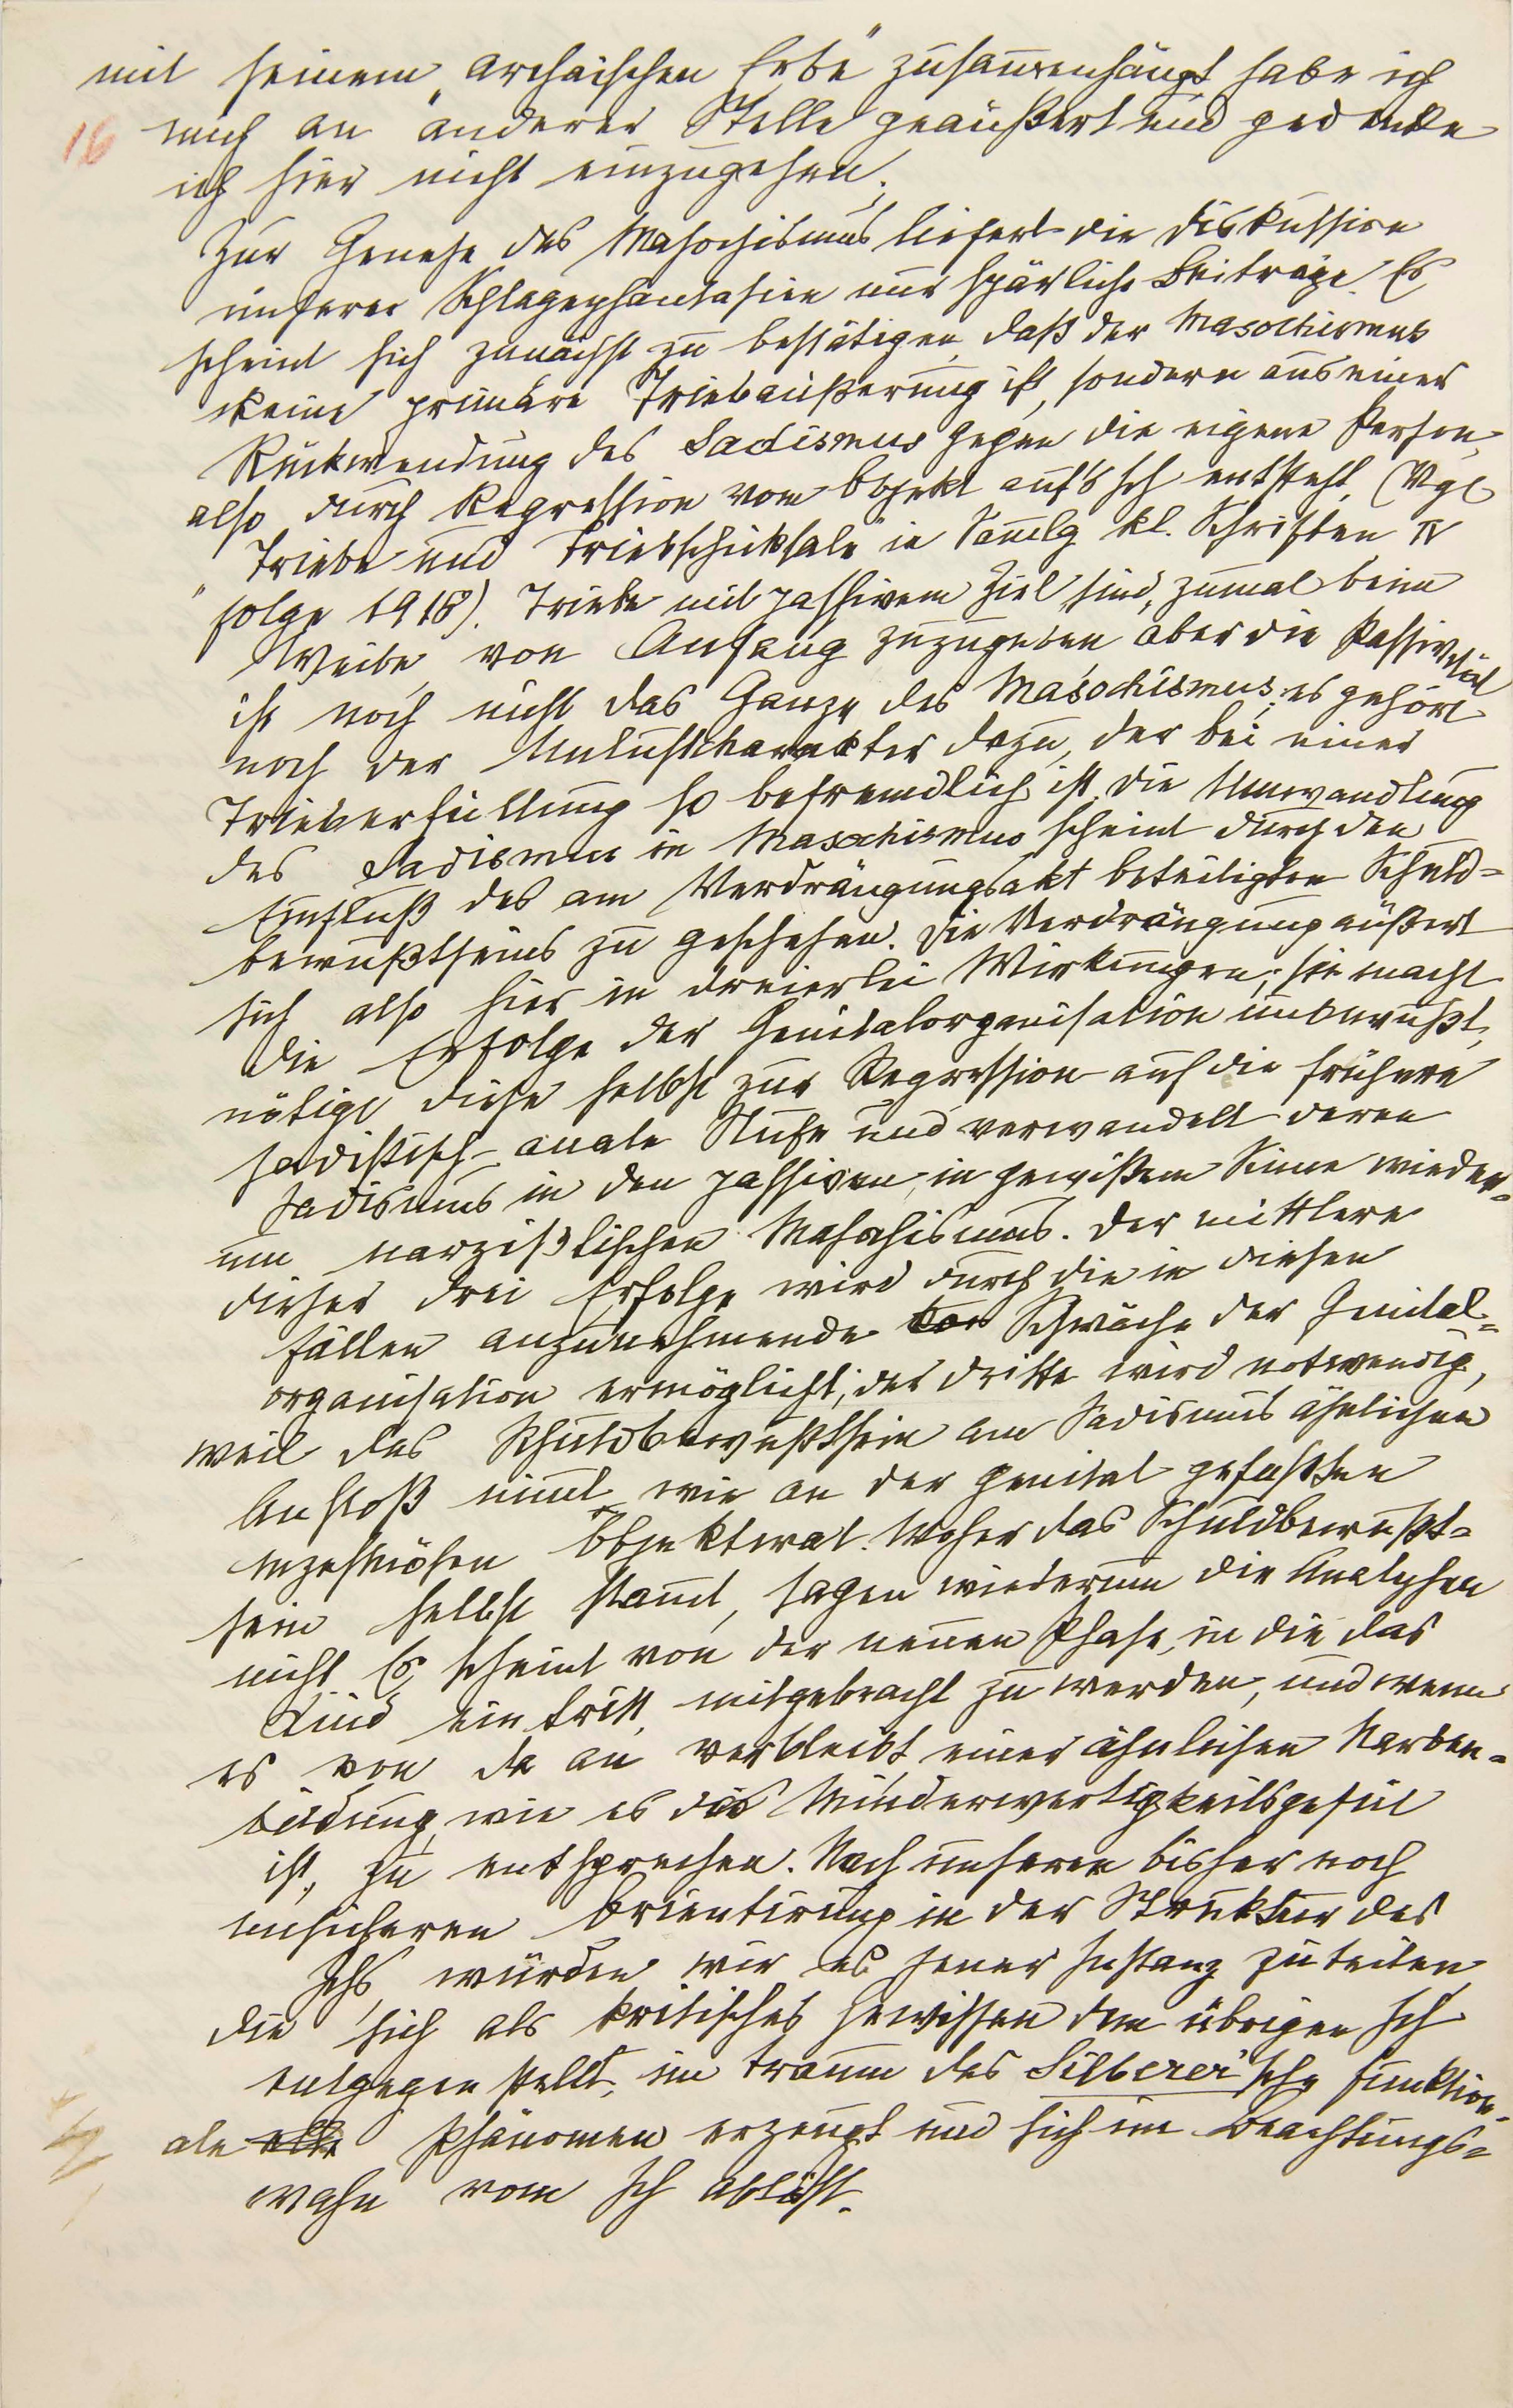 mit seinem „archaischen Erbe“ zusammenhängt habe ich
16 mich an anderer Stelle geäußert und gedenke
ich hier nicht einzugehen.
Zur Genese des Masochismus liefert die Diskussion
unserer Schlagephantasien nur spärliche Beiträge. Es
scheint sich zunächst zu bestätigen, daß der Masochismus
keine primäre Triebäußerung ist, sondern aus einer
Rückwendung des Sadismus gegen die eigene Person,
also durch Regression vom Objekt auf's Ich entsteht, (Vgl
„Triebe und Triebschicksale“ in Sammlg kl. Schriften IV
Folge 1918). Triebe mit passivem Ziel sind, zumal beim
Weibe, von Anfang zuzugeben aber die Passivität
ist noch nicht das Ganze des Masochismus; es gehört
noch der Unlustcharakter dazu, der bei einer
Trieberfüllung so befremdlich ist. Die Umwandlung
des Sadismus in Masochismus scheint durch den
Einfluß des am Verdrängungsakt beteiligten Schuld=
bewußtseins zu geschehen. Die Verdrängung äußert
sich also hier in dreierlei Wirkungen; sie macht
die Erfolge der Genitalorganisation unbewußt,
nötigt diese selbst zur Regression auf die frühere
sadistisch-anale Stufe und verwandelt deren
Sadismus in den passiven, in gewißem Sinne wieder=
um narzißtischen Masochismus. Der mittlere
dieser drei Erfolge wird durch die in diesen
Fällen anzunehmende Schwäche der Genital=
organisation ermöglicht; der dritte wird notwendig,
weil das Schuldbewußtsein am Sadismus ähnlichen
Anstoß nimmt wie an der genital gefaßten
inzestuösen Objektwal. Woher das Schuldbewußt=
sein selbst stammt, sagen wiederum die Analysen
nicht. Es scheint von der neuen Phase, in die das
Kind eintritt, mitgebracht zu werden, und wenn
es von da an verbleibt einer ähnlichen Narben=
bildung, wie es das Minderwertigkeitsgefül
ist, zu entsprechen. Nach unserer bisher noch
unsicheren Orientirung in der Struktur des
Ichs, würden wir es jener Instanz zuteilen,
die sich als kritisches Gewissen dem übrigen Ich
entgegen stellt, im Traum das Silberer'sche funktion=
ale Phänomen erzeugt und sich im Beachtungs=
wahn vom Ich ablöst.